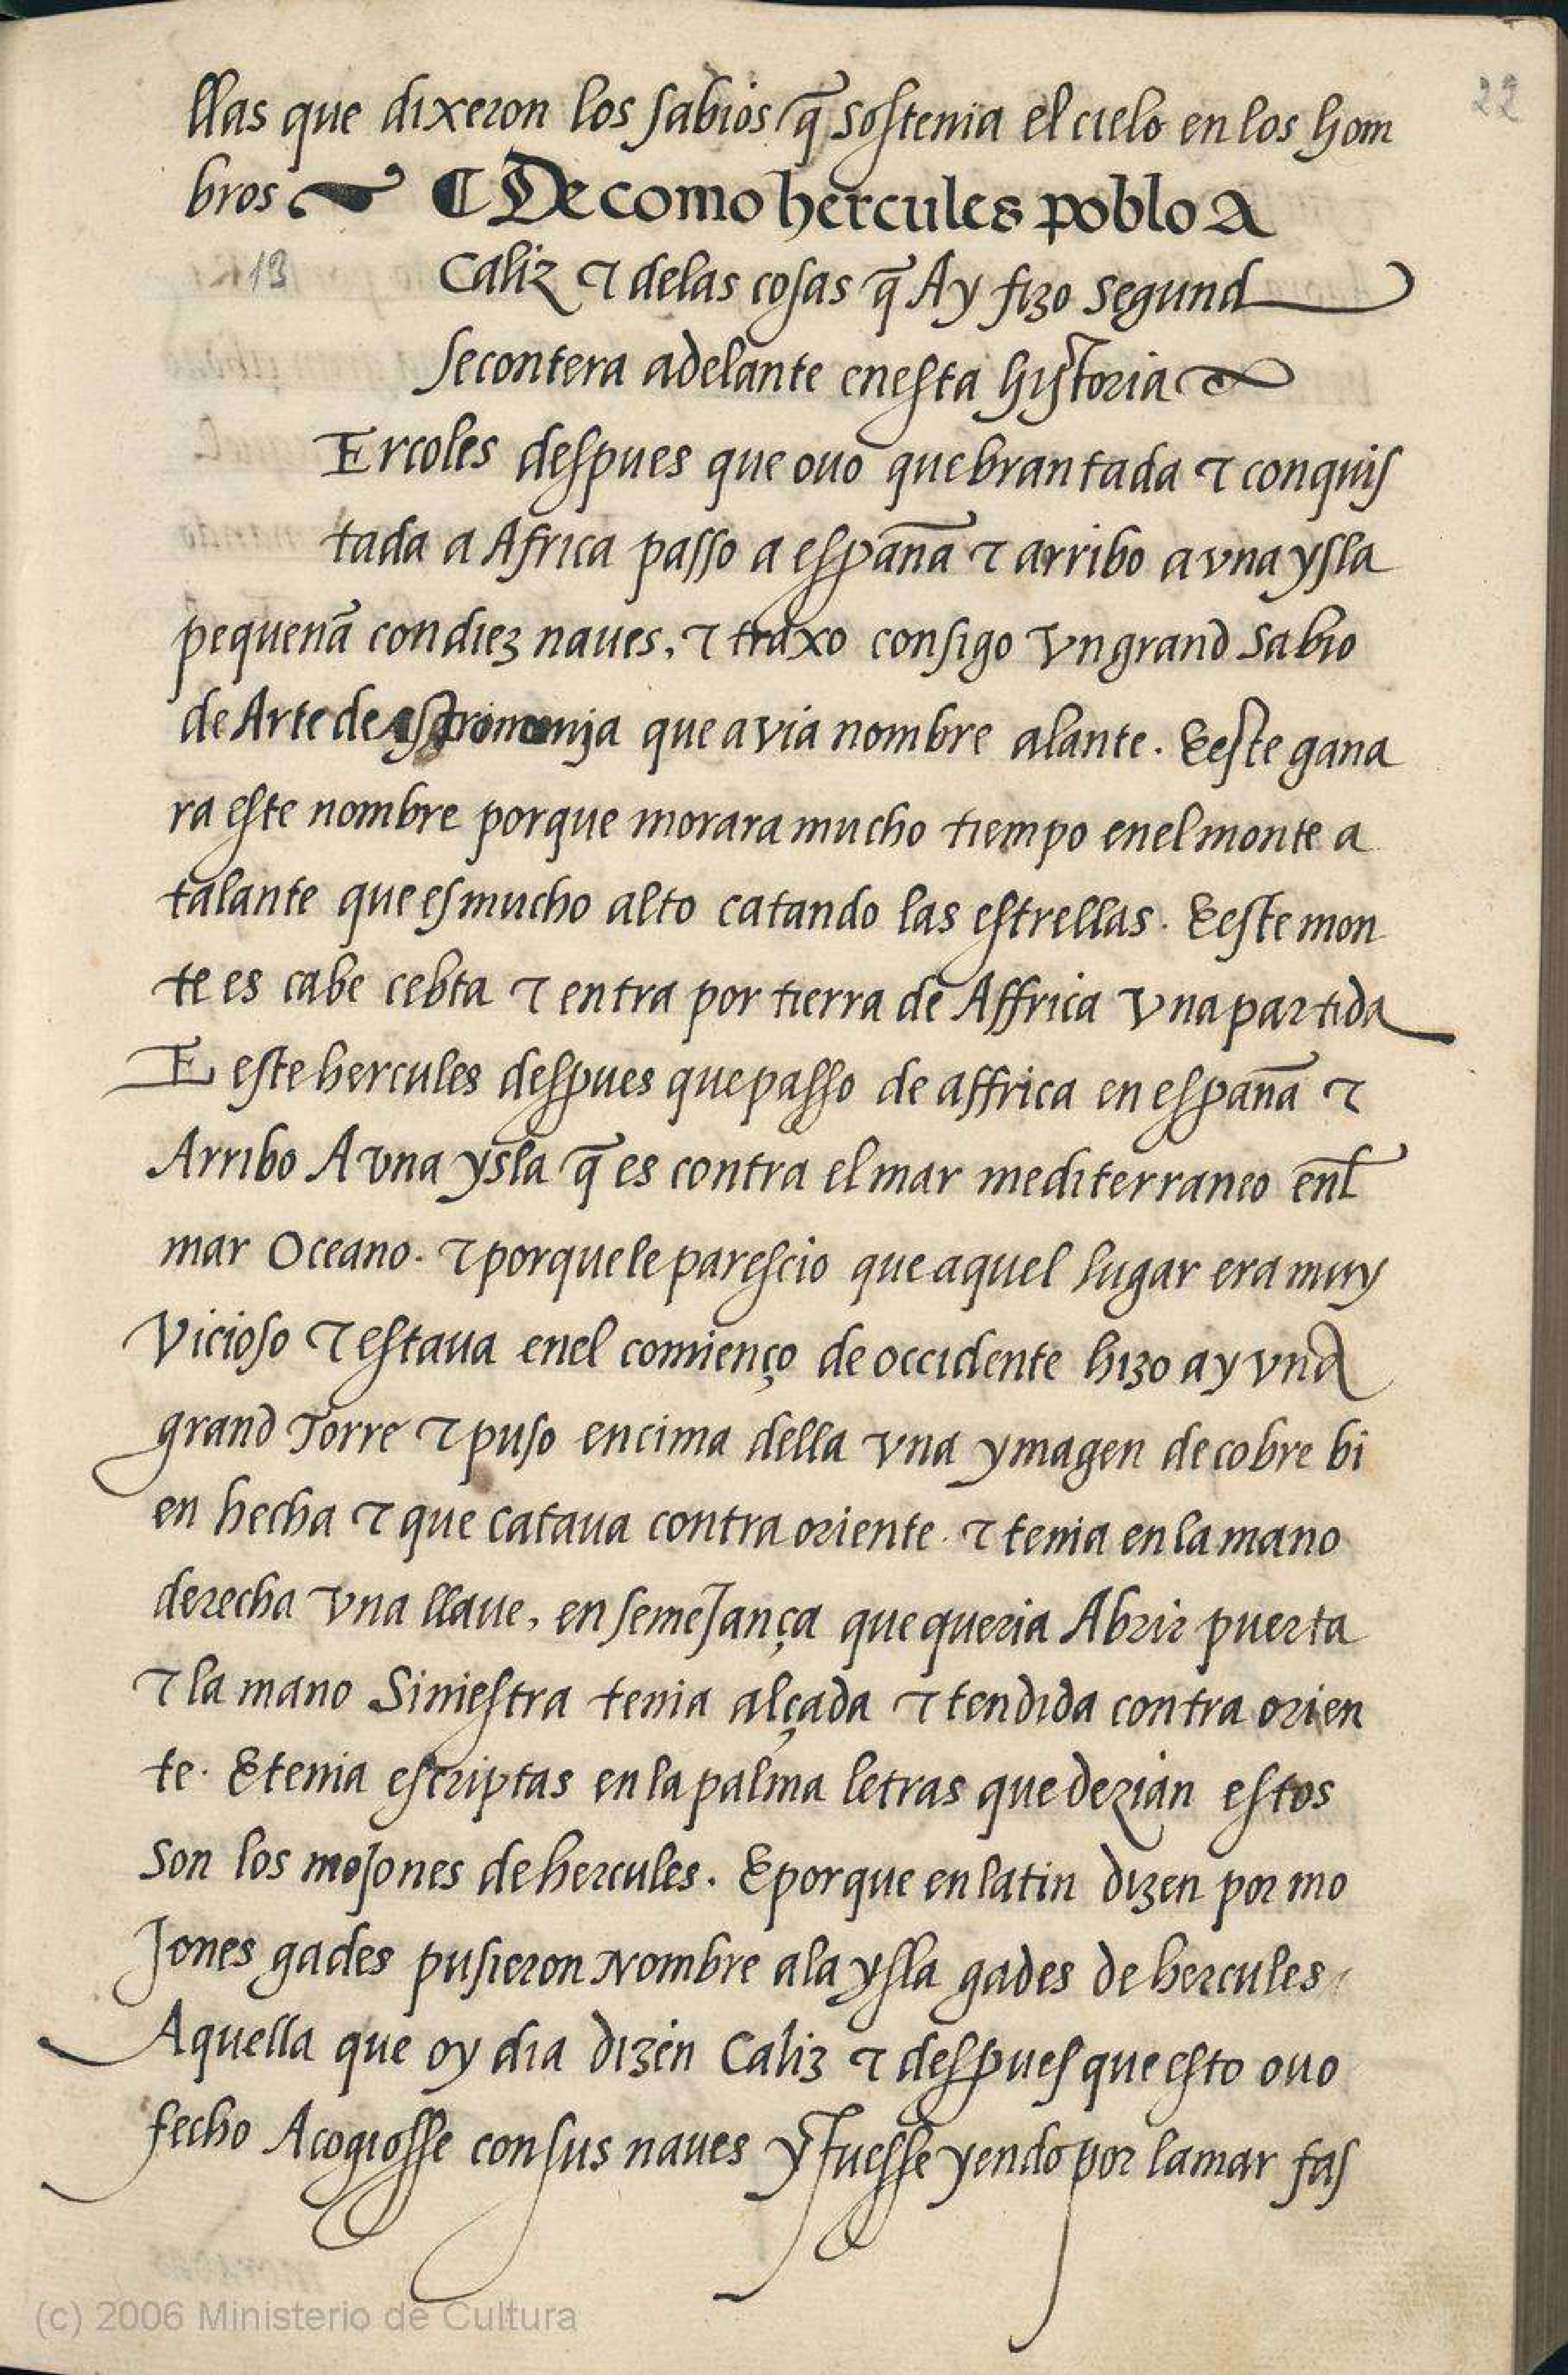 22
llas que dixeron los sabios q̃ sostenia el cielo en los hom
bros ¶ De como hercules poblo A
13
Caliz τ delas cosas q̃ Ay fizo segund
secontera adelante enesta historia
Ercoles despues que ouo quebrantada τ conquis
tada a Africa passo a espana͂ τ arribo a vna ysla
pequena͂ con diez naues, τ traxo consigo vn grand sabio
de Arte de que avia nombre alante. E este gana
ra este nombre porque morara mucho tiempo enel monte a
talante que es mucho alto catando las estrellas. E este mon
te es cabe cebta τ entra por tierra de Affrica vna partida
E este hercules despues que passo de affrica en espana͂ τ
Arribo A vna ysla q̃ es contra el mar mediterraneo enl̃
mar Oceano. τ porque le parescio que aquel lugar era muy
Vicioso τ estaua enel comienço de occidente hizo ay vna
grand Torre τ puso encima della vna ymagen de cobre bi
en hecha τ que cataua contra oriente. τ tenia en la mano
derecha vna llaue, en semejança que queria Abrir puerta
τ la mano siniestra tenia alçada τ tendida contra orien
te. E tenia escriptas en la palma letras que dezian estos
son los mojones de hercules. E porque en latin dizen por mo
jones gades pusieron nombre ala ysla gades de hercules
Aquella que oy dia dizen Caliz τ despues que esto ouo
fecho Acogiosse con sus naues y fuesse yendo por la mar fas
(c) 2006 Ministerio de Cultura